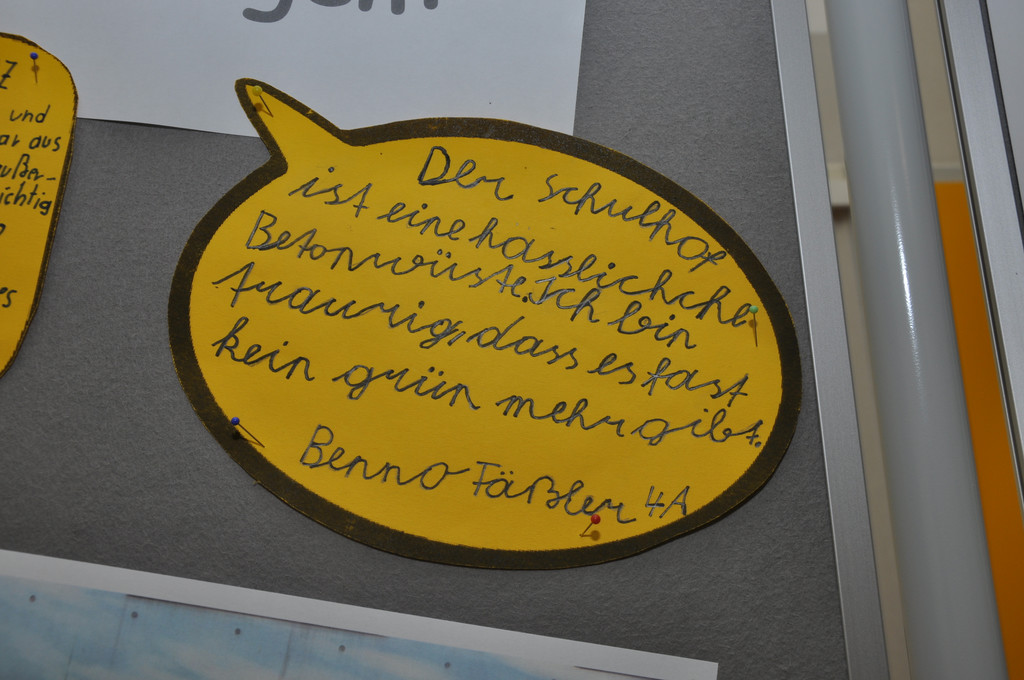 gem
Z
und
ar aus
ußer-
ichtig
es
Der schulhof
ist eine hasslichche
Betonwüste. Ich bin
traurig, dass es fast
kein grün mehr gibt.
Benno Fäßler 4A